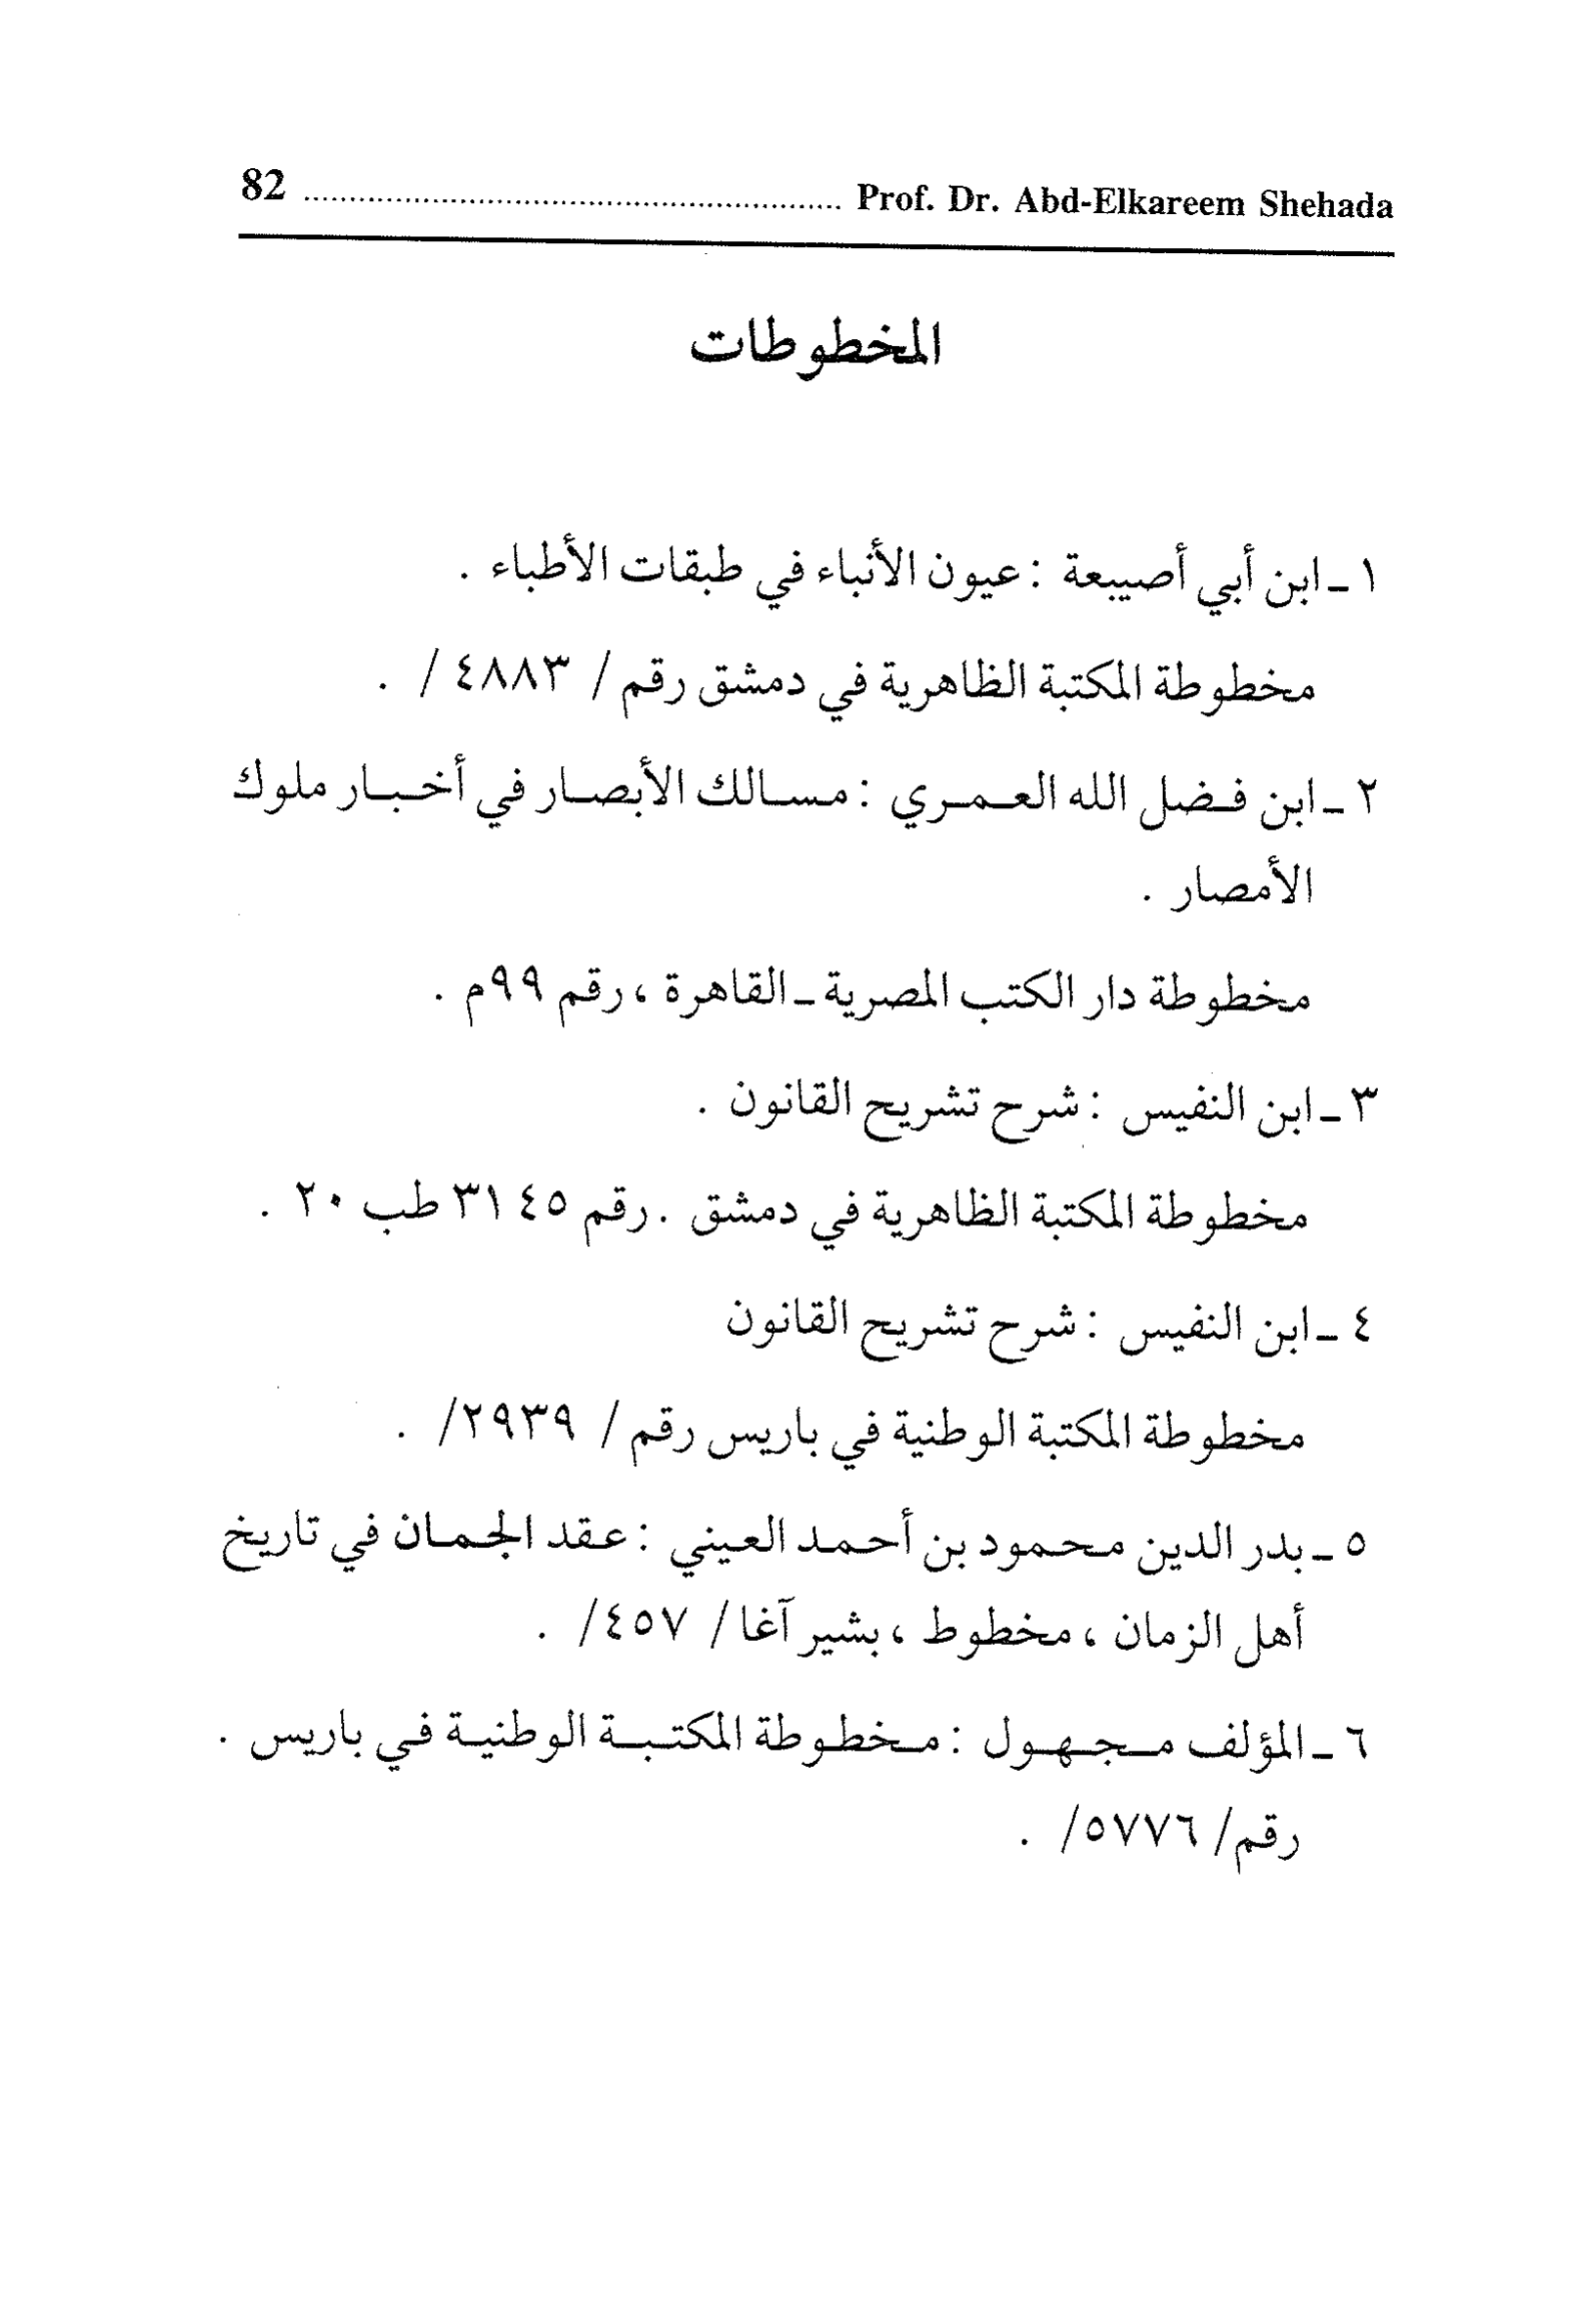 82 ........................................................... Prof. Dr. Abd-Elkareem Shehada
المخطوطات
١ - ابن أبي أصيبعة : عيون الأنباء في طبقات الأطباء .
مخطوطة المكتبة الظاهرية في دمشق رقم / ٤٨٨٣ / .
٢ - ابن فضل الله العمري : مسالك الأبصار في أخبار ملوك
الأمصار .
مخطوطة دار الكتب المصرية - القاهرة ، رقم ٩٩م .
٣ - ابن النفيس : شرح تشريح القانون .
مخطوطة المكتبة الظاهرية في دمشق . رقم ٣١٤٥ طب ٢٠ .
٤ - ابن النفيس : شرح تشريح القانون
مخطوطة المكتبة الوطنية في باريس رقم / ٢٩٣٩/ .
٥ - بدر الدين محمود بن أحمد العيني : عقد الجمان في تاريخ
أهل الزمان ، مخطوط ، بشير آغا / ٤٥٧/ .
٦ - المؤلف مجهول : مخطوطة المكتبة الوطنية في باريس .
رقم/ ٥٧٧٦/ .